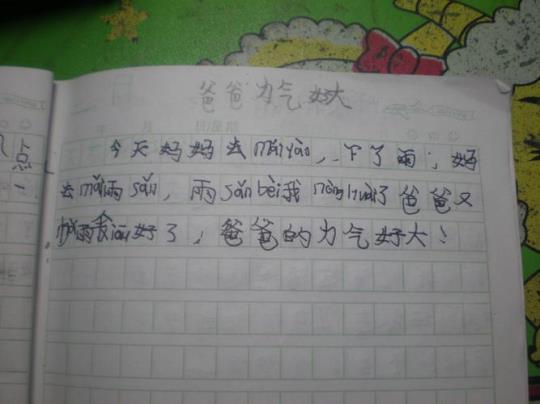 爸爸力气好大
今天妈妈去mǎiyào，下了雨，妈
去mǎi雨sǎn，雨sǎn bèi我nòng huài了爸爸又
雨伞 好了，爸爸的力气好大！
点